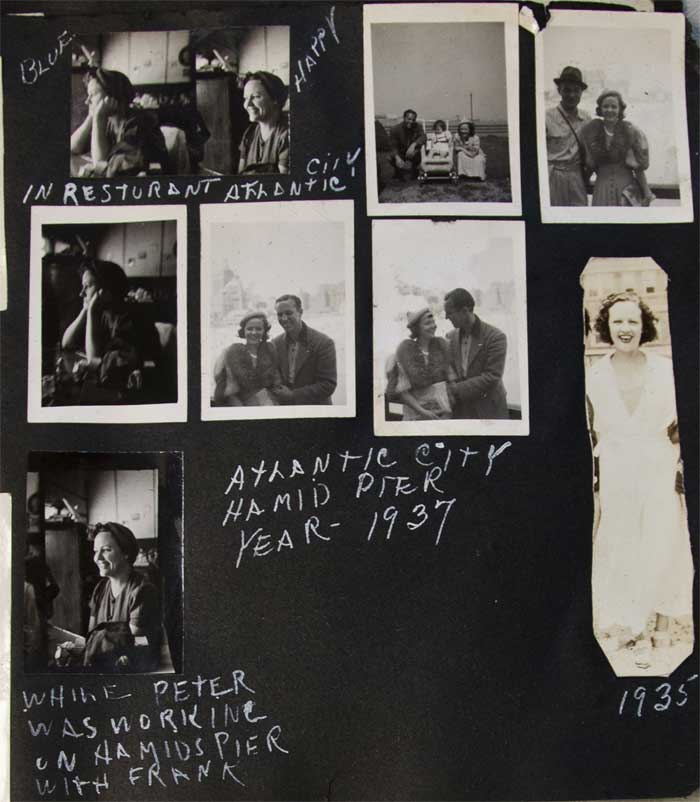 BLUE
HAPPY
IN RESTURANT ATLANTIC CITY
ATLANTIC CITY
HAMID PIER
YEAR - 1937
1935
WHILE PETER
WAS WORKING
ON HAMIDS PIER
WITH FRANK